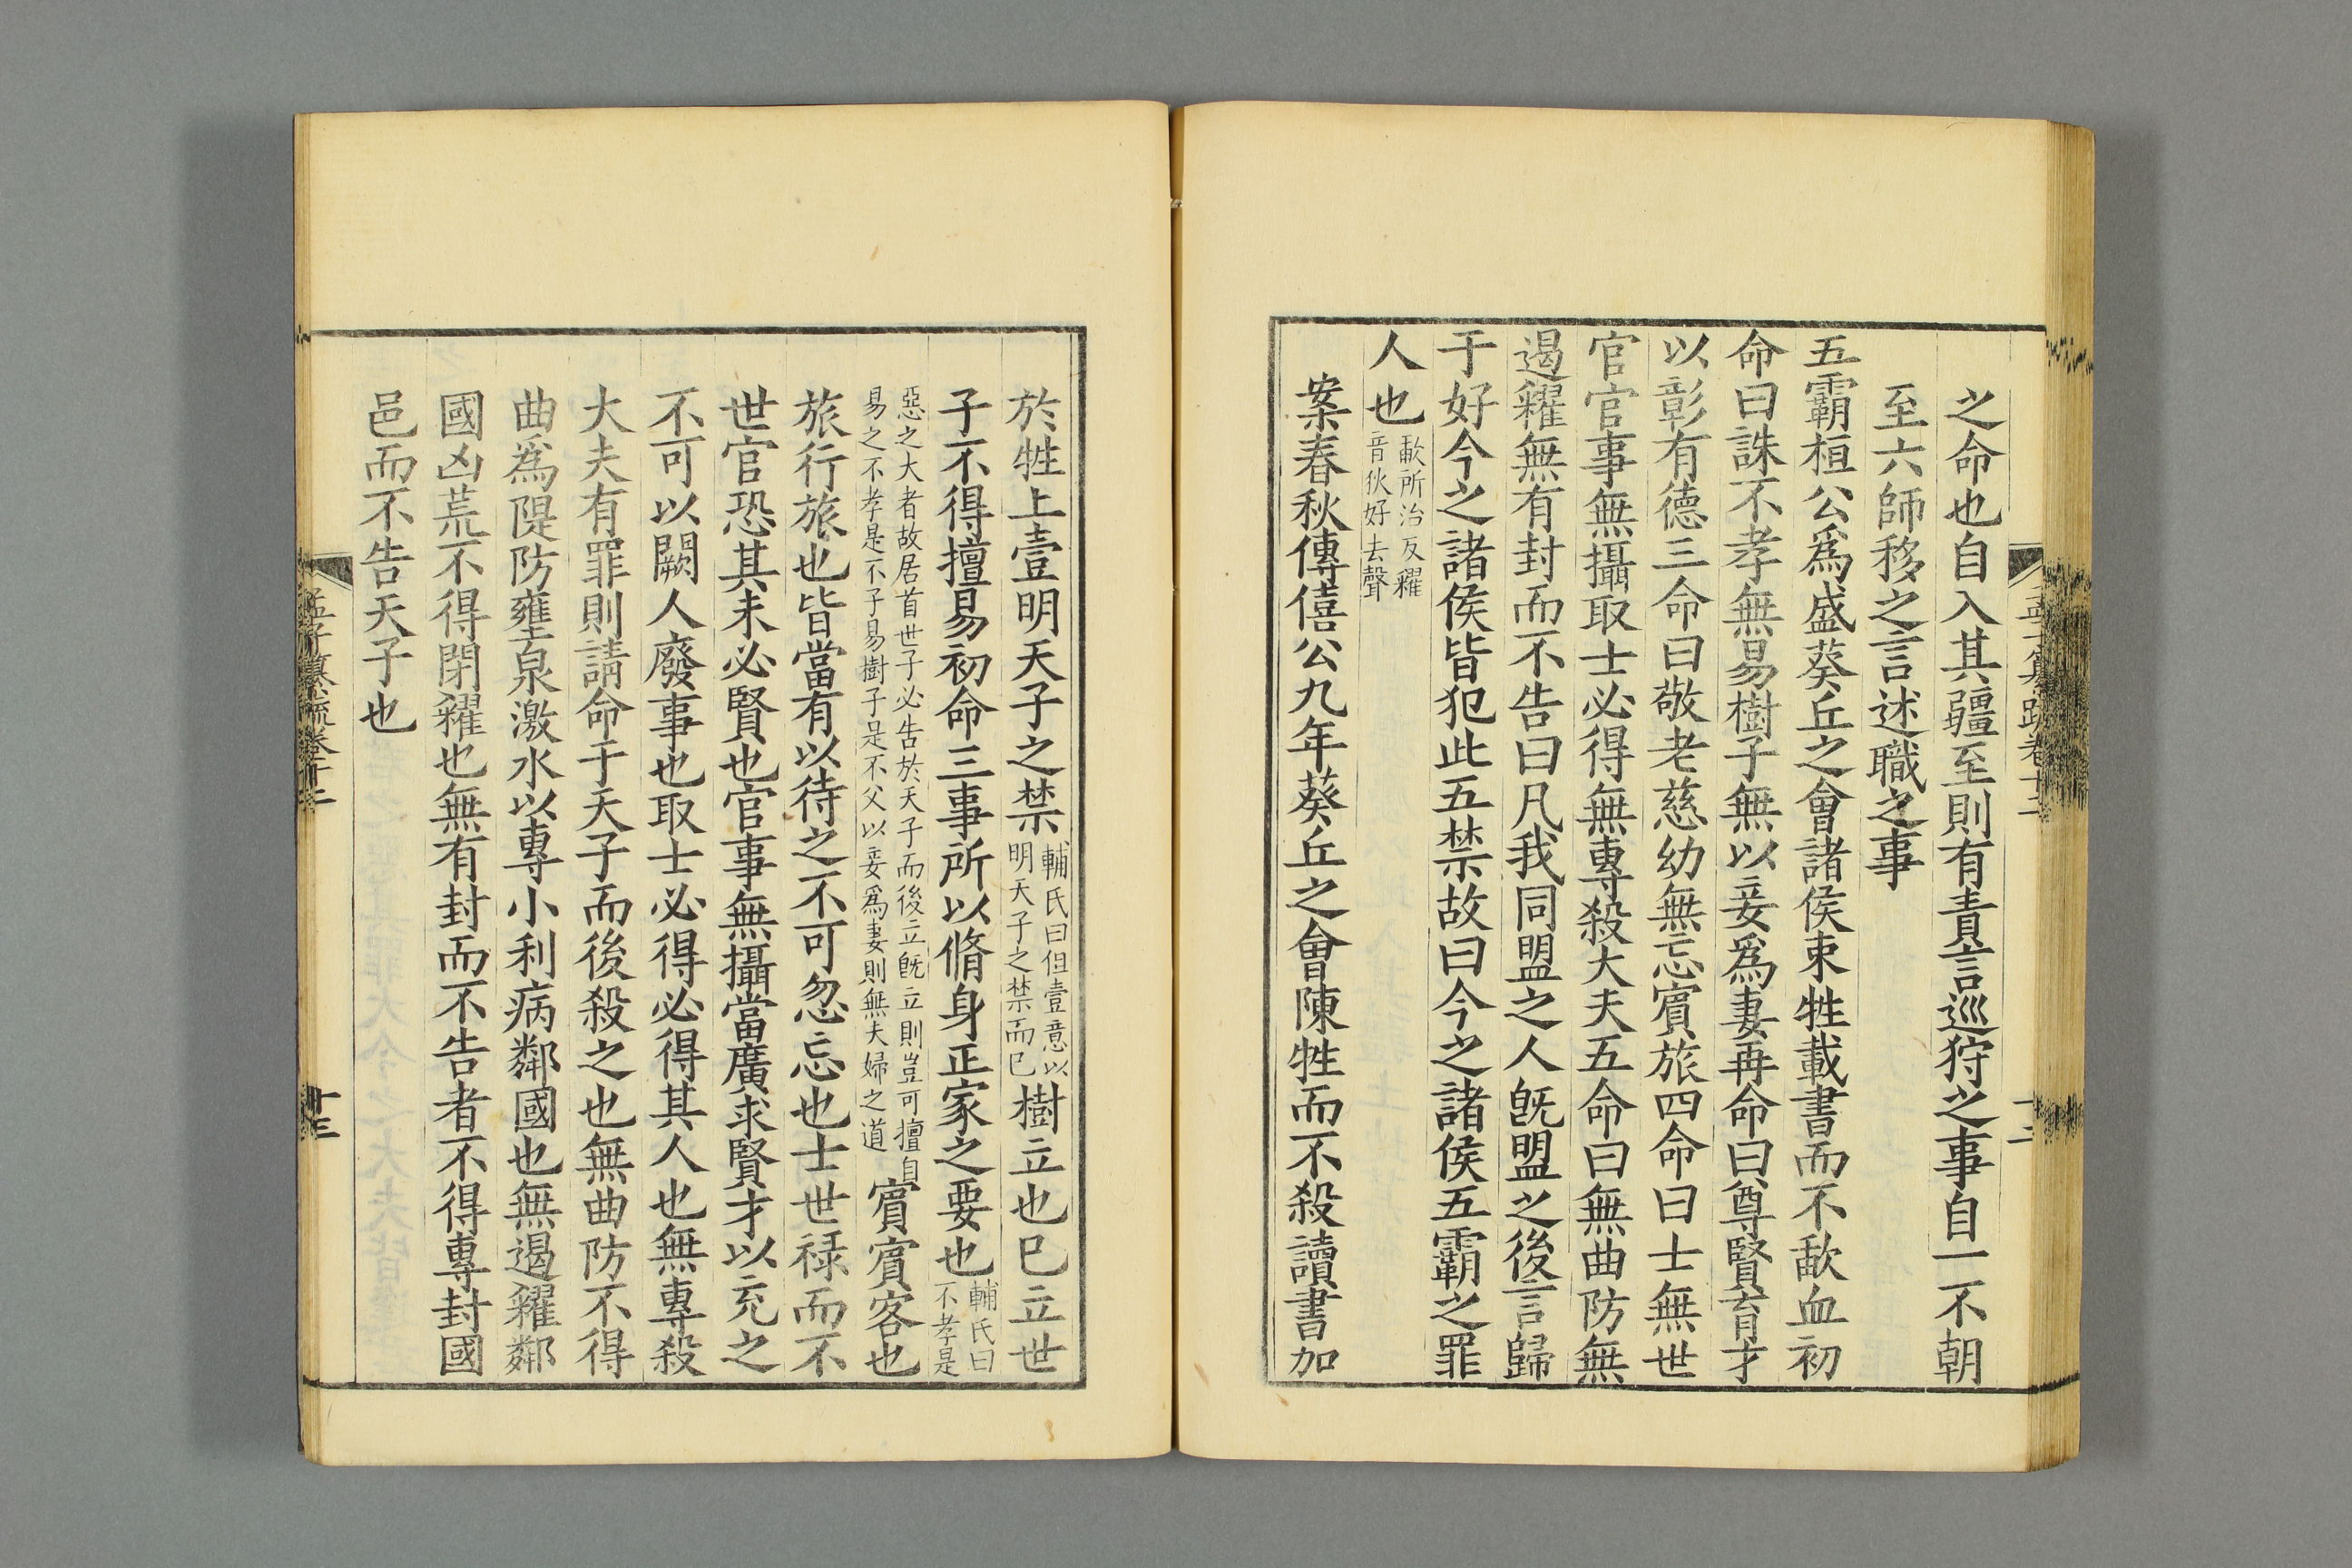 之命也自入其疆至則有責言巡狩之事自一不朝
至六師移之言述職之事
五霸桓公爲盛葵丘之會諸侯束牲載書而不歃血初
命曰誅不孝無易樹子無以妾爲妻再命曰尊賢育才
以彰有德三命曰敬老慈幼無忘賓旅四命曰士無世
官官事無攝取士必得無專殺大夫五命曰無曲防無
遏糴無有封而不告曰凡我同盟之人旣盟之後言歸
于好今之諸侯皆犯此五禁故曰今之諸侯五霸之罪
人也歃所治反糴音狄好去聲
案春秋傳僖公九年葵丘之會陳牲而不殺讀書加
於牲上壹明天子之禁輔氏曰但壹意以明天子之禁而已樹立也已立世
子不得擅易初命三事所以脩身正家之要也輔氏曰不孝是
惡之大者故居首世子必告於天子而後立旣立則豈可擅自易之不孝是不子易樹子是不父以妾爲妻則無夫婦之道賓賓客也
旅行旅也皆當有以待之不可忽忘也士世祿而不
世官恐其未必賢也官事無攝當廣求賢才以充之
不可以闕人廢事也取士必得必得其人也無專殺
大夫有罪則請命于天子而後殺之也無曲防不得
曲爲隄防壅泉激水以專小利病鄰國也無遏糴鄰
國凶荒不得閉糴也無有封而不告者不得專封國
邑而不告天子也
孟子纂疏卷十二
十三